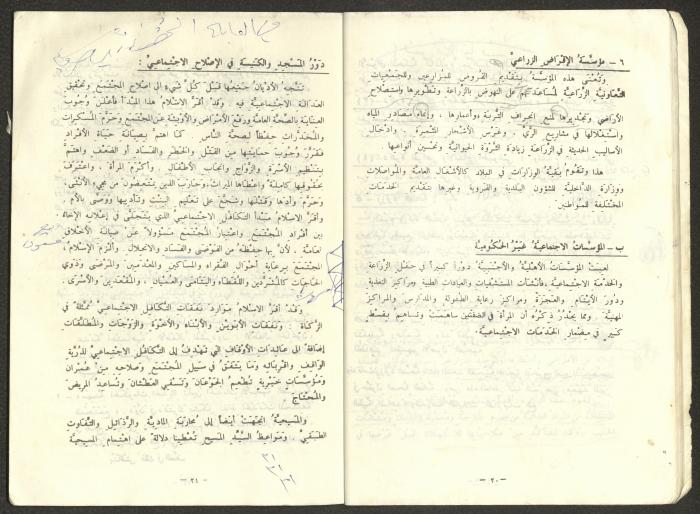 ٦ - مؤسسة الإقراض الزراعي
وتعنى هذه المؤسسة بتقديم القروض للمزارعين وللجمعيات
التعاونية الزراعية لمساعدتهم على النهوض بالزراعة وتطويرها واستصلاح
الأراضي وتجديدها لمنع انجراف التربة واعمارها ، وإتمام مصادر المياه
واستغلالها في مشاريع الري ، وغرس الأشجار المثمرة ، وادخال
الأساليب الحديثة في الزراعة زيادة الثروة الحيوانية وتحسين أنواعها .
هذا وتقوم بقية الوزارات في البلاد كالأشغال العامة والمواصلات
ووزارة الداخلية للشؤون البلدية والقروية وغيرها بتقديم الخدمات
المختلفة للمواطنين .
ب - المؤسسات الاجتماعية غير الحكومية
لعبت المؤسسات الأهلية والأجنبية دورا كبيرا في حقل الزراعة
والخدمة الاجتماعية ، فأنشأت المستشفيات والعيادات الطبية ومراكز التغذية
ودور الأيتام والعجزة ومراكز رعاية الطفولة والمدارس والمراكز
المهنية . ومما يجدر ذكره أن المرأة في الضفتين ساهمت وتساهم بقسط
كبير في مضمار الخدمات الاجتماعية .
- ٢٠ -
دور المسجد والكنيسة في الإصلاح الاجتماعي :
تتجه الأديان جميعها قبل كل شيء إلى اصلاح المجتمع وتحقيق
العدالة الاجتماعية فيه . وقد أقر الاسلام هذا المبدأ فأعلن وجوب
العناية بالصحة العامة ورفع الأمراض والأوبئة عن المجتمع وحرم المسكرات
والمخدرات حفظا لصحة الناس . كما اهتم بصيانة حياة الأفراد
فقرر وجوب حمايتها من القتل والخطر والفساد أو الضعف واهتم
بتنظيم الأسرة والزواج وانجاب الأطفال . وأكرم المرأة ، واعترف
بحقوقها كاملة وإعطاها الميراث، وحارب الذين يمتعضون من مجيء الأنثى،
وحرم وأدها وقتلها وشجع على تعليم البنت وتأديبها ووصى بالأم .
وأقر الاسلام مبدأ التكافل الاجتماعي الذي يتجلى في إعلانه الإخاء
بين أفراد المجتمع واعتبار المجتمع مسؤولا عن صيانة الأخلاق
العامة ، لأن بها حفظه من الفوضى والفساد والانحلال . وألزم الإسلام
المجتمع برعاية أحوال الفقراء والمساكين والمعدمين والمرضى وذوي
الحاجات كالمشردين واللقطاء واليتامى والعميان ، والمقعدين والأسرى .
وقد أقر الاسلام موارد نفقات التكافل الاجتماعي ممثلة في
الزكاة : ونفقات الأبوين والأبناء والأخوة والزوجات والمطلقات
إضافة إلى عائدات الأوقاف التي تهدف إلى التكافل الاجتماعي للذرية
الواقف وأقربائه وما يتفق في سبيل المجتمع وصلاحه من عمران
ومؤسسات خيرية تطعم الجوعان وتسقي العطشان وتساعد المريض
والمحتاج
والمسيحية اتجهت أيضا إلى محاربة المادية والرذائل والتفاوت
الطبقي . ومواعظ السيد المسيح تعطينا دلالة على اهتمام المسيحية
- ٢١ -